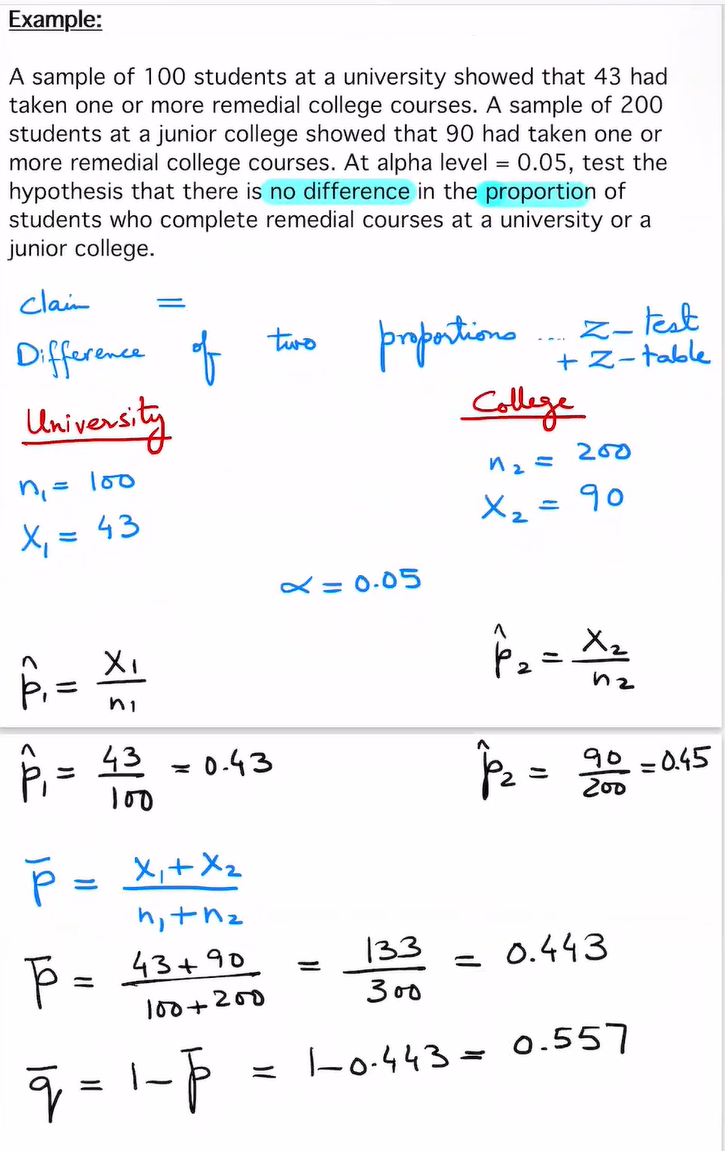 Example:
A sample of 100 students at a university showed that 43 had
taken one or more remedial college courses. A sample of 200
students at a junior college showed that 90 had taken one or
more remedial college courses. At alpha level = 0.05, test the
hypothesis that there is no difference in the proportion of
students who complete remedial courses at a university or a
junior college.
Claim =
Difference of two proportions .... Z-test
+ Z-table
University College
n₁ = 100 n₂ = 200
X₁ = 43 X₂ = 90
α = 0.05
p̂₁ = X₁/n₁ p̂₂ = X₂/n₂
p̂₁ = 43/100 = 0.43 p̂₂ = 90/200 = 0.45
p̄ = X₁+X₂/n₁+n₂
p̄ = 43+90/100+200 = 133/300 = 0.443
q̄ = 1-p̄ = 1-0.443 = 0.557